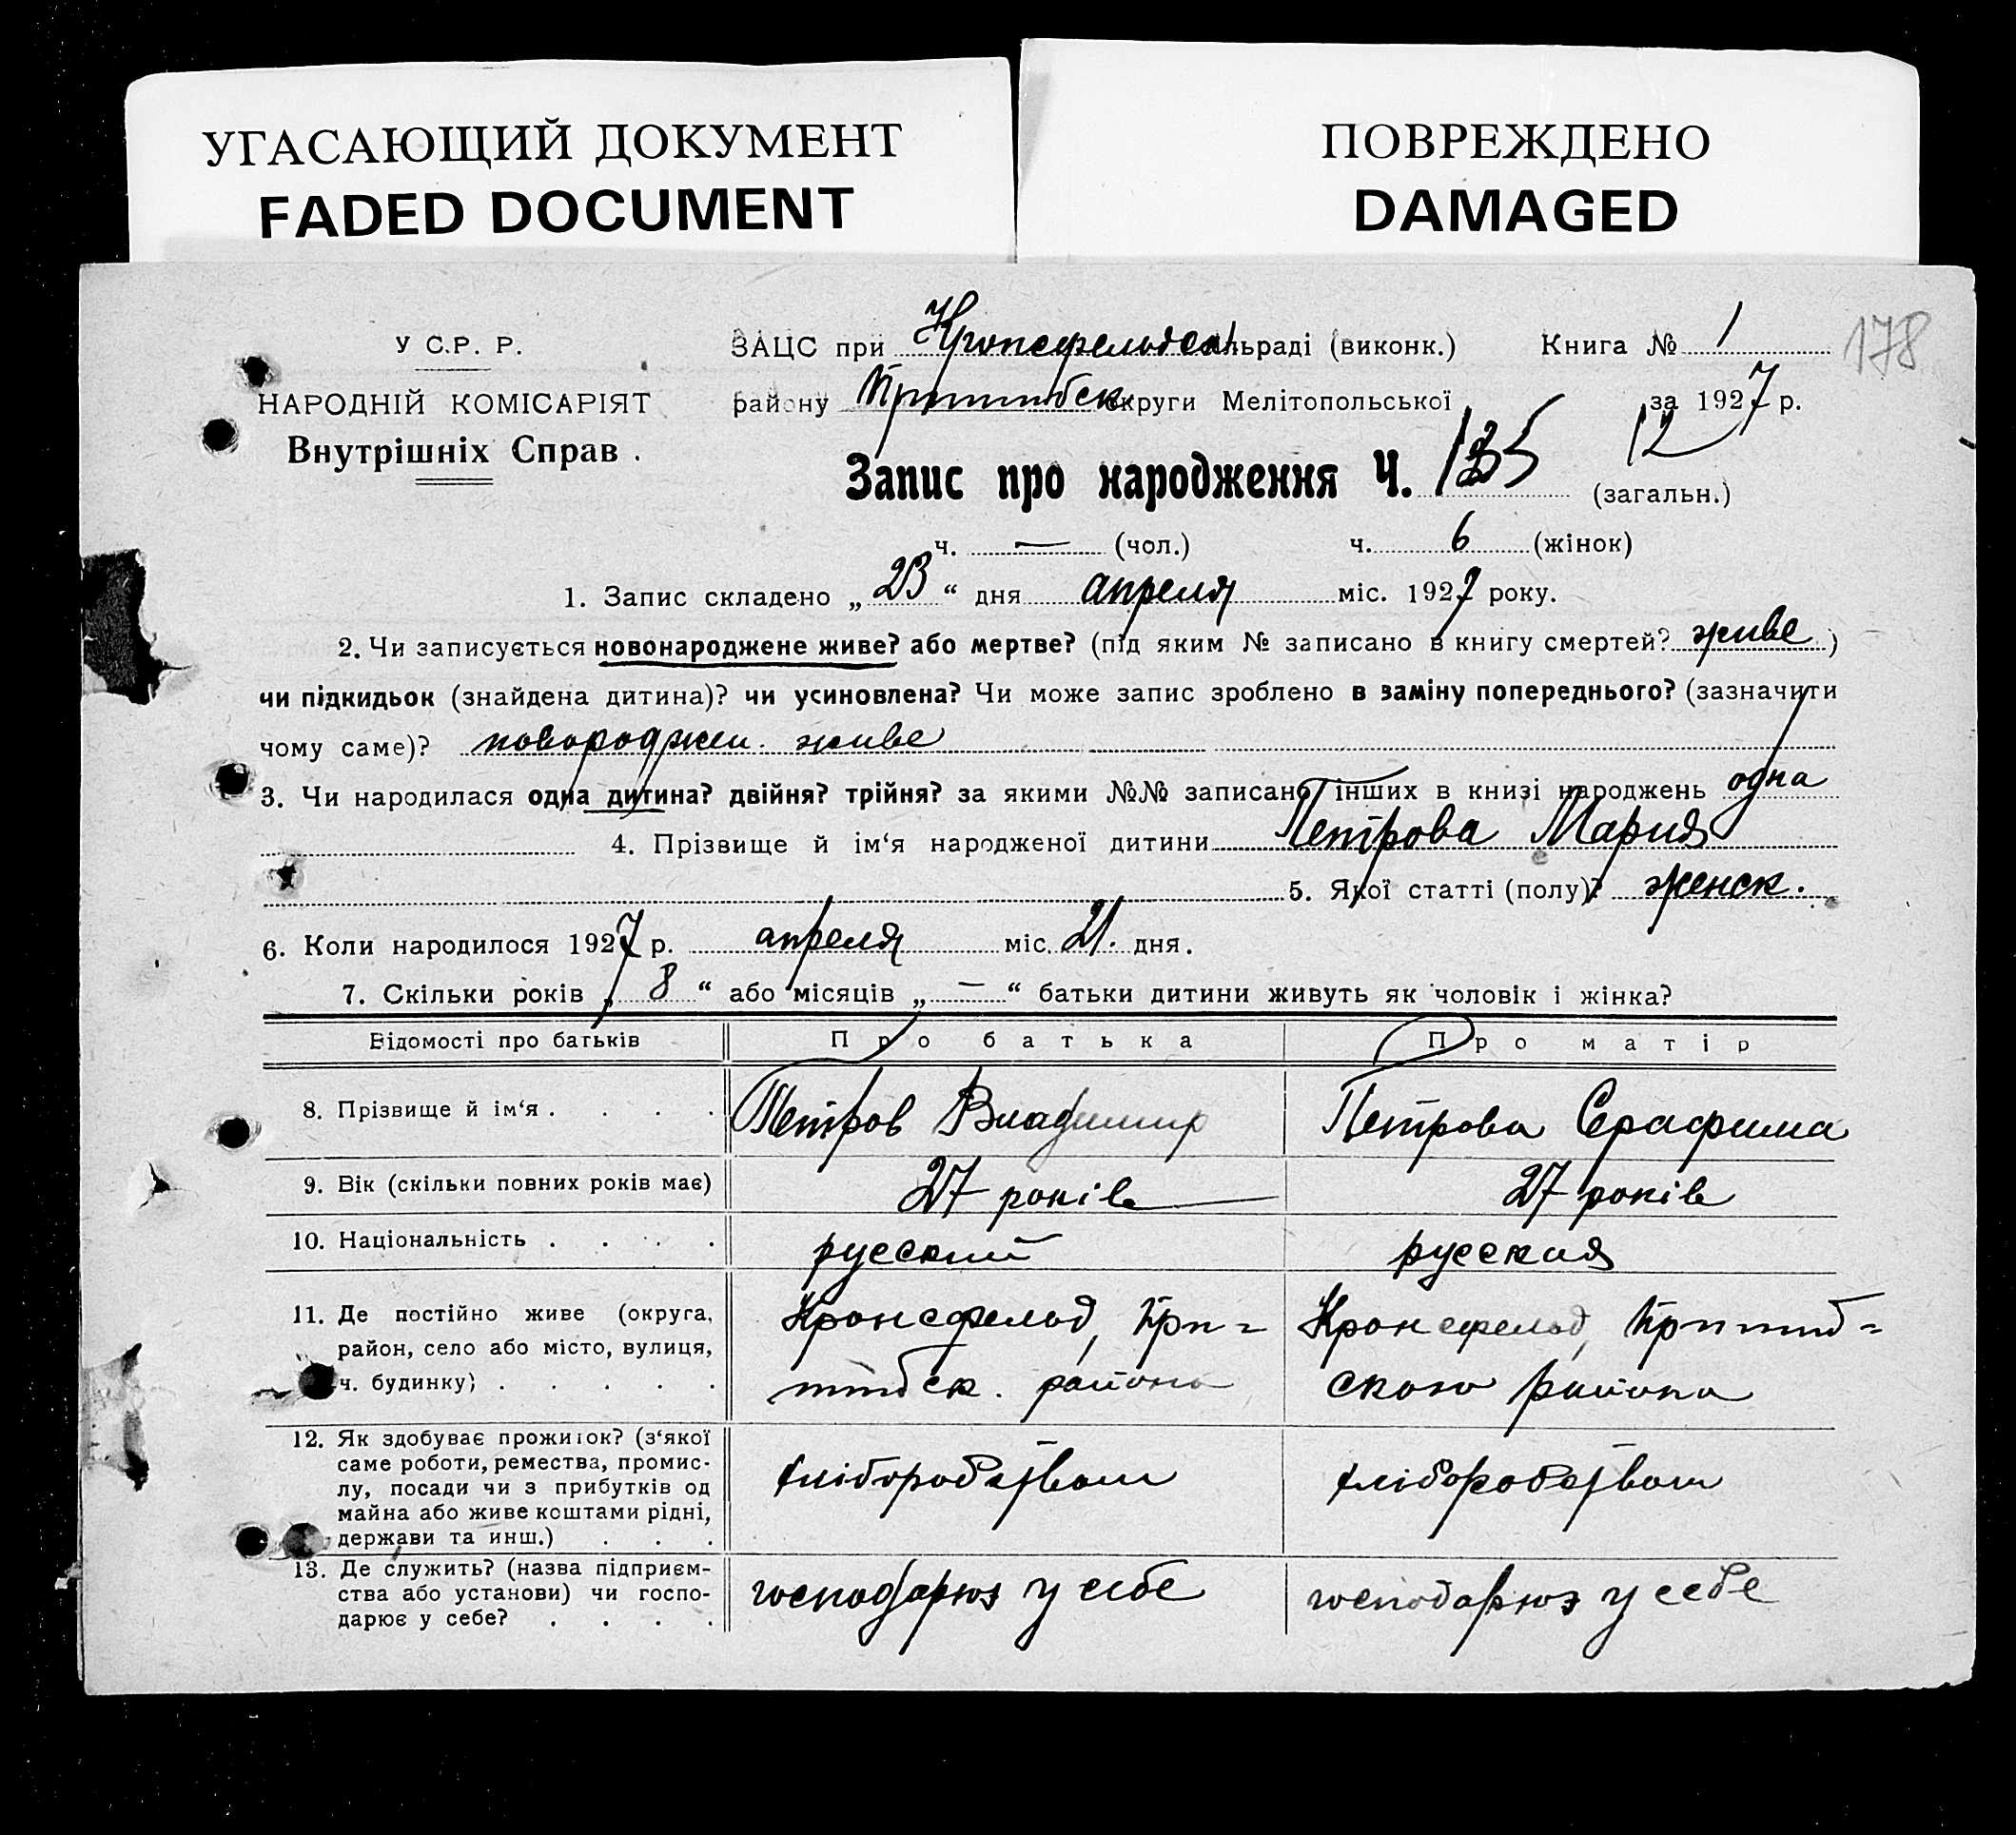 УГАСАЮЩИЙ ДОКУМЕНТ
FADED DOCUMENT
ПОВРЕЖДЕНО
DAMAGED
У С.Р. Р.
НАРОДНІЙ КОМІСАРІЯТ
Внутрішніх Справ.
ЗАЦС при Кронсфельдсільраді (виконк.) Книга № 1
178
району Пришибск округи Мелітопольської за 1927 р.
Запис про народження Ч. 135 12 (загальн.)
ч. — (чол.) ч. 6 (жінок)
1. Запис складено „23“ дня апреля міс. 1927 року.
2. Чи записується новонароджене живе? або мертве? (під яким № записано в книгу смертей? живе)
чи підкидьок (знайдена дитина)? чи усиновлена? Чи може запис зроблено в заміну попереднього? (зазначити
чому саме)? новороджен. живе
3. Чи народилася одна дитина? двійня? трійня? за якими №№ записано інших в книзі народжень одна
4. Прізвище й ім‘я народженої дитини Петрова Мария
5. Якої статті (полу)? женск.
6. Коли народилося 1927 р. апреля міс. 21. дня.
7. Скільки років „8“ або місяців „—“ батьки дитини живуть як чоловік і жінка?
Відомості про батьків Про батька Про матір
8. Прізвище й ім‘я . . . . Петров Владимир Петрова Серафима
9. Вік (скільки повних років має) 27 років 27 років
10. Національність . . . . русский русская
11. Де постійно живе (округа, Кронсфельд, При= Кронсфельд, Пришиб=
район, село або місто, вулиця,
ч. будинку) . . . . . шибск. района ского района
12. Як здобуває прожиток? (з‘якої
саме роботи, ремества, промис-
лу, посади чи з прибутків од хліборобством хліборобством
майна або живе коштами рідні,
держави та инш.) . . .
13. Де служить? (назва підприєм-
ства або установи) чи госпо- господарює у себе господарює у себе
дарює у себе? . . . .